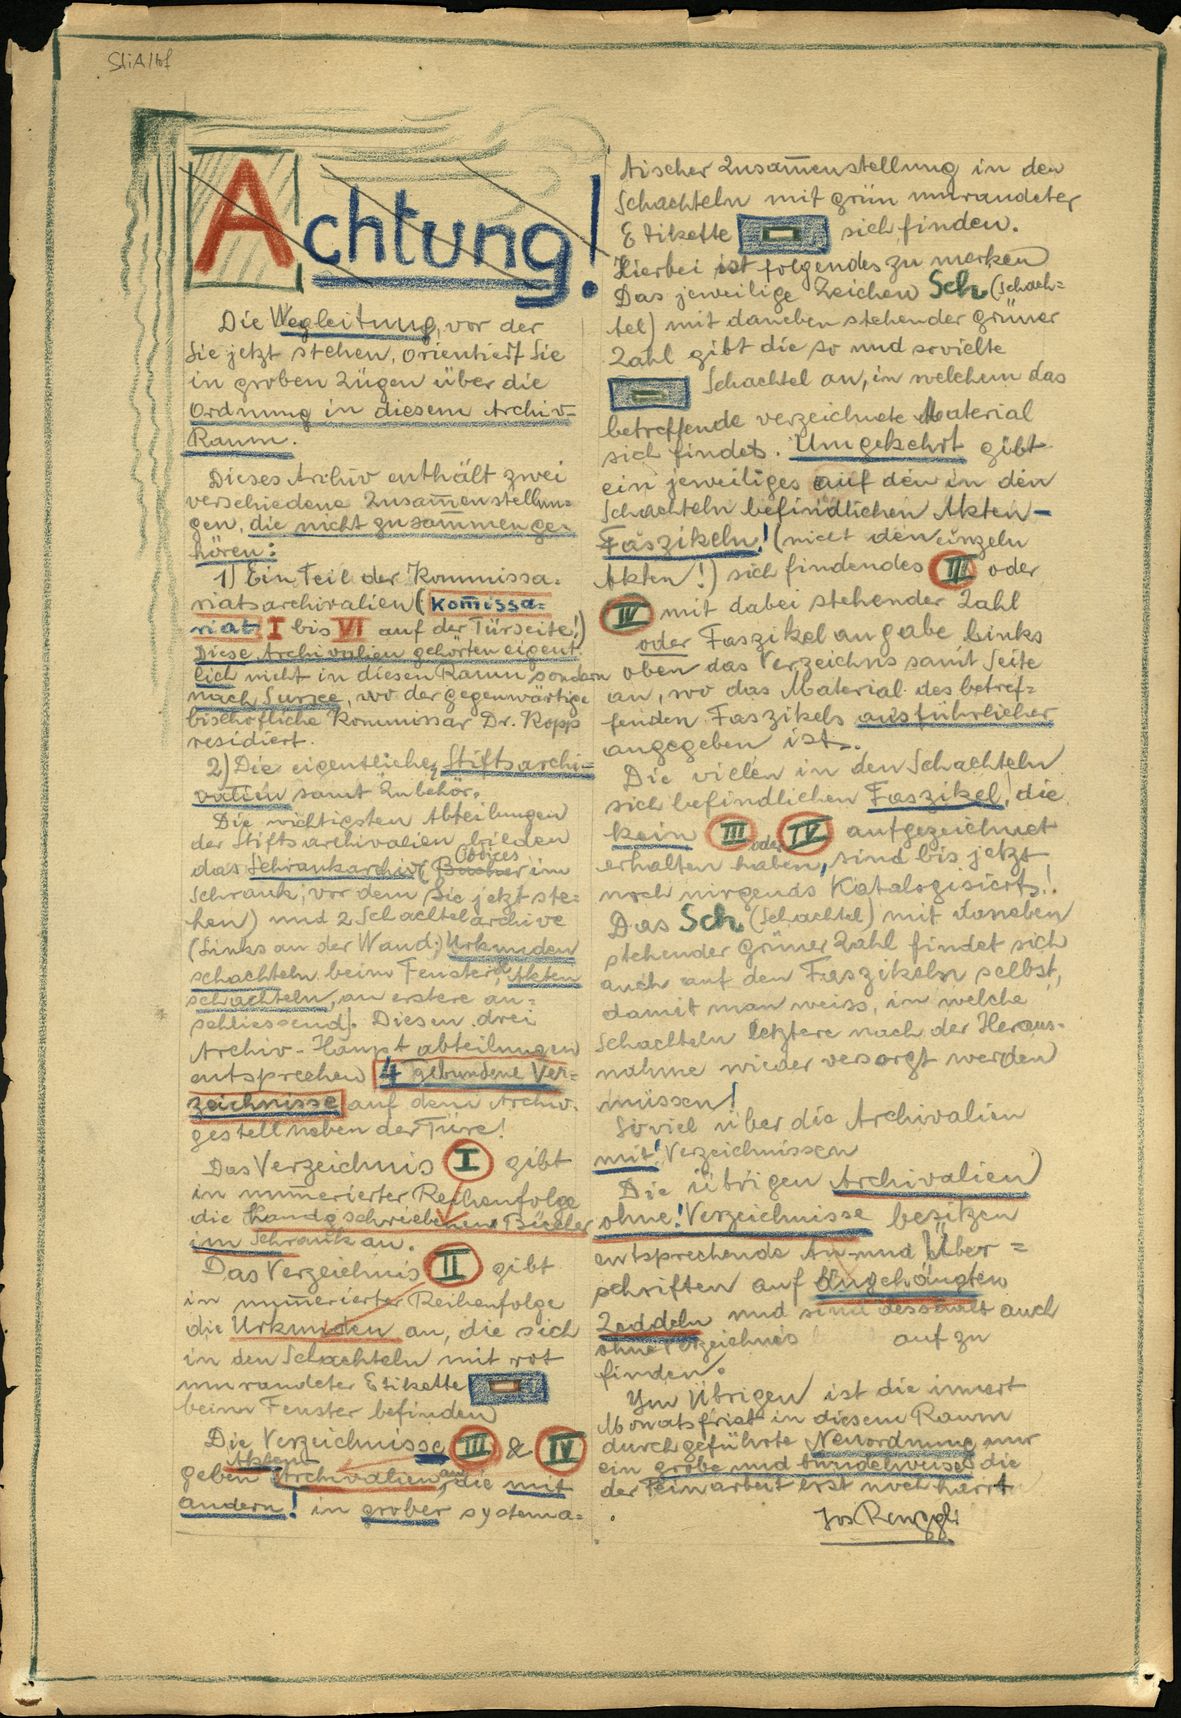 StiAHof
Achtung!
Die Wegleitung, vor der
Sie jetzt stehen, orientiert Sie
in groben Zügen über die
Ordnung in diesem Archiv-
Raum.
Dieses Archiv enthält zwei
verschiedene Zusam̅enstellun-
gen, die nicht zusam̅menge-
hören:
1) Ein Teil der Kommissa-
riatsarchivalien (Kom̅issa-
riat I bis VI auf der Türseite!)
Diese Archivalien gehörten eigent
lich nicht in diesen Raum, sondern
nach Sursee, wo der gegenwärtige
bischöfliche Kommissar Dr. Kopp
residiert.
2) Die eigentlichen Stiftsarchi-
valien samt Zubehör.
Die wichtigsten Abteilungen
der Stiftsarchivalien bilden
das Schrankarchiv (Bücher im
Schrank, vor dem Sie jetzt ste-
hen) und 2 Schachtelarchive
(Links an der Wand; Urkunden
schachteln beim Fenster, & Akten
schachteln, an erstere an-
schliessend). Diesen drei
Archiv-Hauptabteilungen
entsprechen 4 gebundene Ver-
zeichnisse auf dem Archiv-
gestell neben der Türe!
Das Verzeichnis I gibt
in num̅erierter Reihenfolge
die Handgschriebenen Bücher
im Schrank an.
Das Verzeichnis II gibt
in num̅erierter Reihenfolge
die Urkunden an, die sich
in den Schachteln mit rot
umrandeter Etikette
beim Fenster befinden
Die Verzeichnisse III & IV
Akten
geben Archivalien an, die mit
andern! in grober systema-
tischer Zusam̅enstellung in den
Schachteln mit grün umrandeter
Etikette sich finden.
Hierbei ist folgendes zu merken
Das jeweilige Zeichen Sch. (Schach-
tel) mit daneben stehender grüner
Zahl gibt die so und sovielte
Schachtel an, in welchem das
betreffende verzeichnete Material
sich findet. Umgekehrt gibt
ein jeweiliges auf den in den
Schachteln befindlichen Akten-
Faszikeln! (nicht den einzeln
Akten!) sich findendes III oder
IV mit dabei stehender Zahl
oder Faszikelangabe, links
oben das Verzeichnis samt Seite
an, wo das Material des betref-
fenden Faszikels ausführlicher
angegeben ist.
Die vielen in den Schachteln
sich befindlichen Faszikel, die
kein III oder IV aufgezeichnet
erhalten haben, sind bis jetzt
noch nirgends Katalogisiert!
Das Sch. (Schachtel) mit daneben
stehender grüner Zahl findet sich
auch auf den Faszikeln selbst,
damit man weiss, in welche
Schachteln letztere nach der Heraus-
nahme wieder versorgt werden
müssen!
Soviel über die Archivalien
mit! Verzeichnissen
Die übrigen Archivalien
ohne! Verzeichnisse besitzen
entsprechende An- und Über=
schriften auf angehängten
Zeddeln und sind desshalb auch
ohne Verzeichnis auf zu
finden.
Im Übrigen ist die innert
Monatsfrist in diesem Raum
durchgeführte Neuordnung nur
ein grobe und die
der Feinarbeit erst noch harrt
Jos Renggli